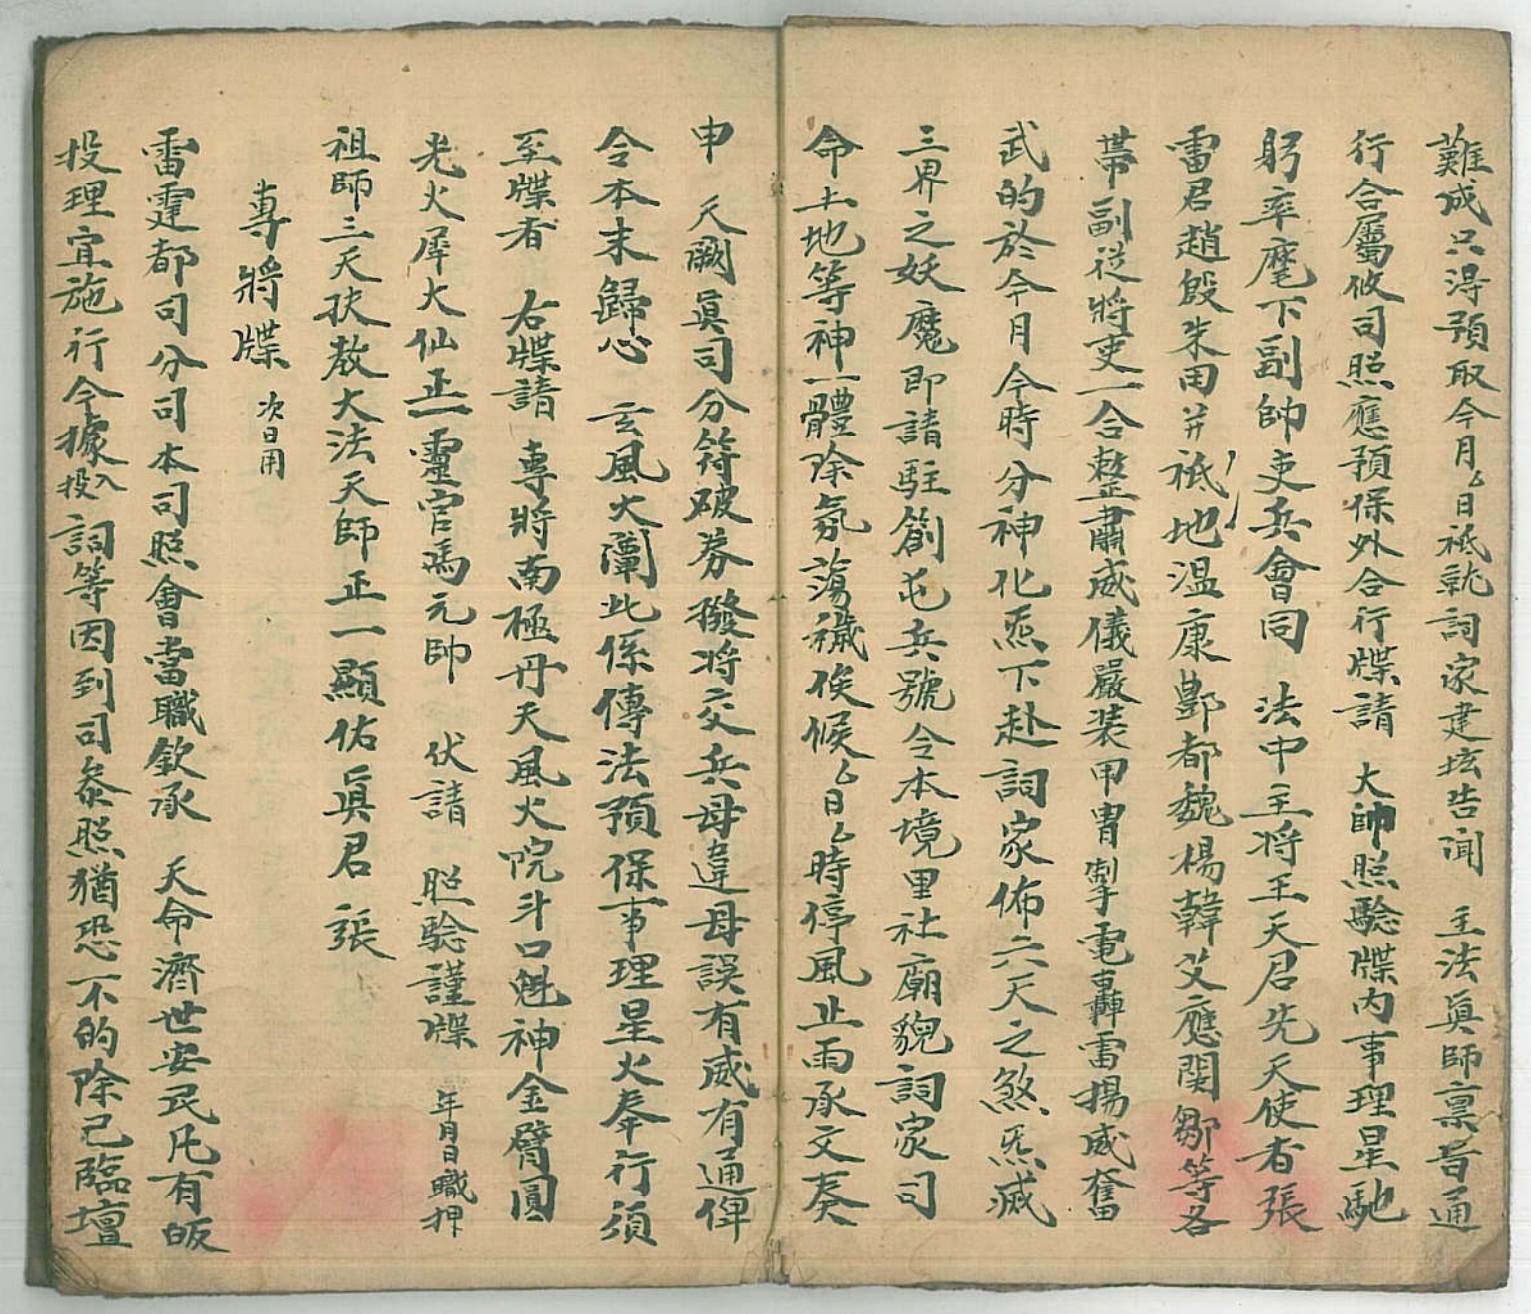 難成只淂預取今月厶日祗就詞家建坛告闻　主法眞師禀旨通
行合屬攸司照應預保外合行牒請　大帥照驗牒内事理星馳
躬率麾下副帥吏兵會同　法中主将王天君先天使者張
雷君趙殷朱田并祗地温康酆都魏楊韓艾應関鄒等各
帯副従將吏一合整肅威儀嚴装甲冑掣電轟雷揚威奮
武的於今月今時分神化炁下赴詞家佈六天之煞炁滅
三界之妖魔即請駐劄屯兵號令本境里社廟貌詞家司
命土地等神一體除氛蕩穢俟候厶日厶時停風止雨承文奏
申　天闕眞司分符破券撥将交兵毋違毋誤有威有通俾
令本末歸心　玄風大闡此係傳法預保事理星火奉行須
至牒者　右牒請　專將南極丹天風火院斗口魁神金臂圓
光火犀大仙正一靈官馬元帥　伏請　照驗謹牒　年月日職押
祖師三天扶教大法天師正一顯佑眞君　張
專將牒　次日用
雷霆都司分司本司照會當職欽承　天命濟世安民凡有皈
投理宜施行今據入投詞等因到司叅照猶恐不的除已臨壇